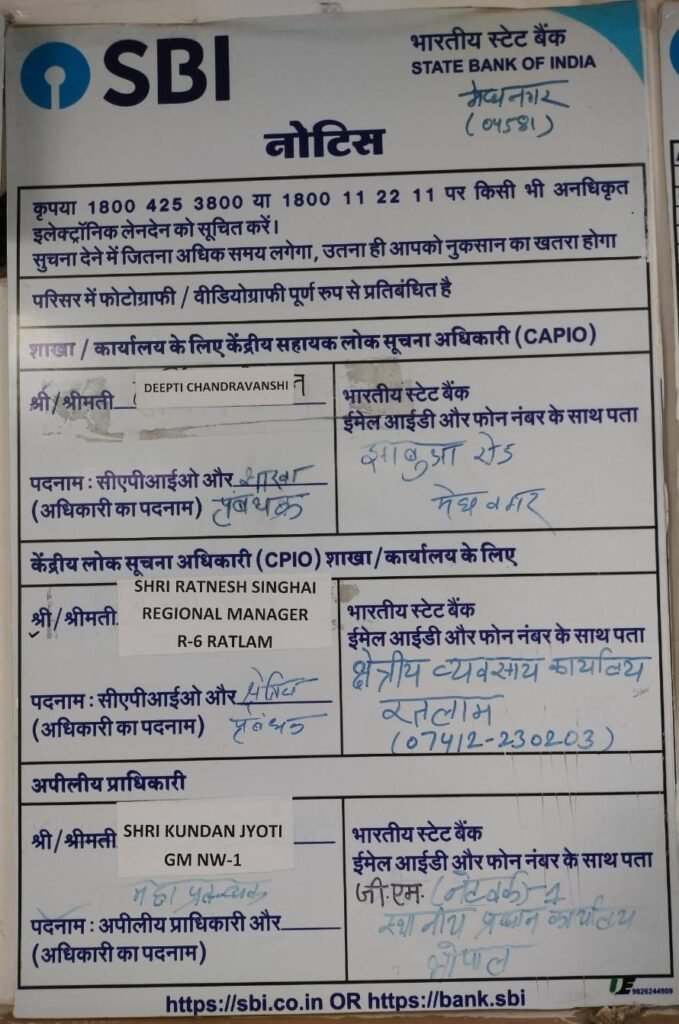 SBI
भारतीय स्टेट बैंक
STATE BANK OF INDIA
मेघनगर
(04581)
नोटिस
कृपया 1800 425 3800 या 1800 11 22 11 पर किसी भी अनधिकृत
इलेक्ट्रॉनिक लेनदेन को सूचित करें।
सुचना देने में जितना अधिक समय लगेगा, उतना ही आपको नुकसान का खतरा होगा
परिसर में फोटोग्राफी / वीडियोग्राफी पूर्ण रुप से प्रतिबंधित है
शाखा / कार्यालय के लिए केंद्रीय सहायक लोक सूचना अधिकारी (CAPIO)
श्री/श्रीमती DEEPTI CHANDRAVANSHI
पदनाम : सीएपीआईओ और शाखा
(अधिकारी का पदनाम) प्रबंधक
भारतीय स्टेट बैंक
ईमेल आईडी और फोन नंबर के साथ पता
झाबुआ रोड
मेघनगर
केंद्रीय लोक सूचना अधिकारी (CPIO) शाखा/कार्यालय के लिए
श्री/श्रीमती SHRI RATNESH SINGHAI
REGIONAL MANAGER
R-6 RATLAM
पदनाम : सीएपीआईओ और क्षेत्रिय
(अधिकारी का पदनाम) प्रबंधक
भारतीय स्टेट बैंक
ईमेल आईडी और फोन नंबर के साथ पता
क्षेत्रीय व्यवसाय कार्यालय
रतलाम
(07412-230203)
अपीलीय प्राधिकारी
श्री/श्रीमती SHRI KUNDAN JYOTI
GM NW-1
महा प्रबन्धक
पदनाम : अपीलीय प्राधिकारी और
(अधिकारी का पदनाम)
भारतीय स्टेट बैंक
ईमेल आईडी और फोन नंबर के साथ पता
जी.एम. (नेटवर्क)-1
स्थानीय प्रधान कार्यालय
भोपाल
https://sbi.co.in OR https://bank.sbi
9826244909